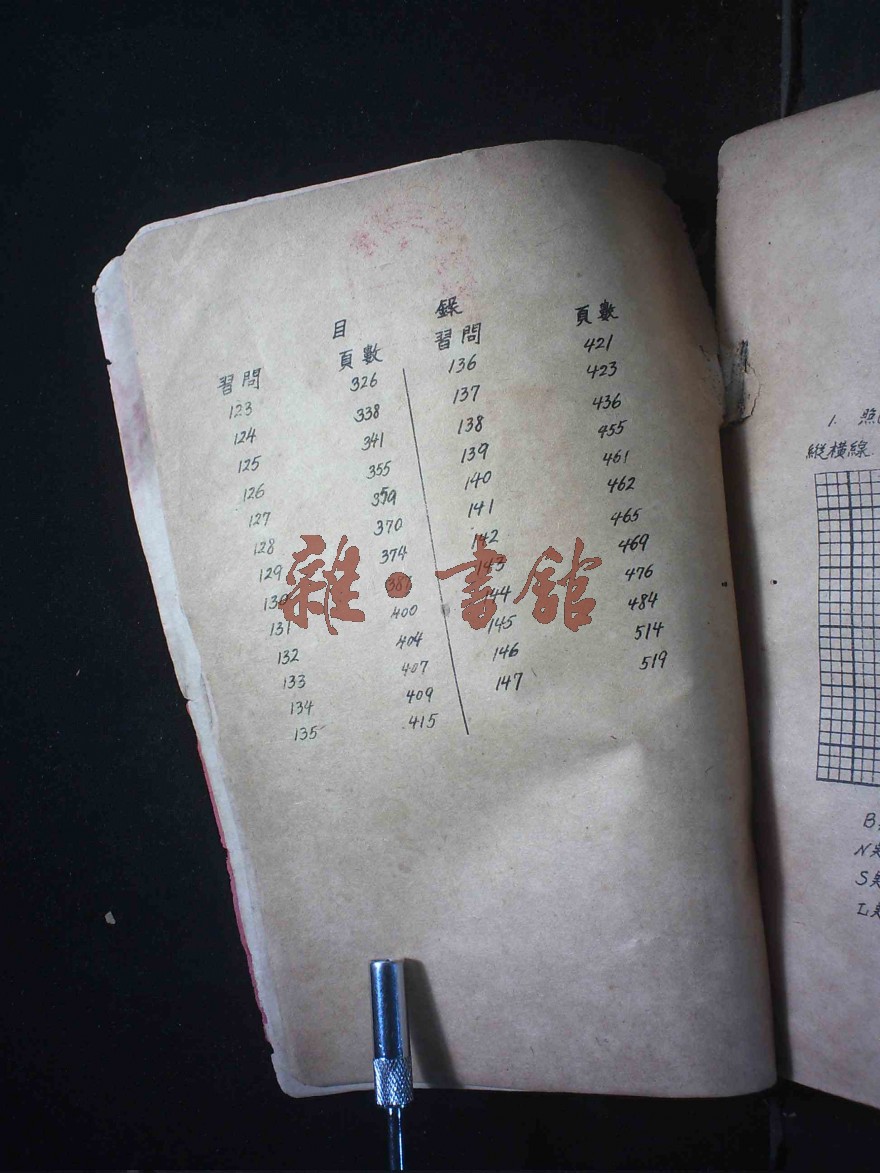 目 錄
習問 頁數
123 326
124 338
125 341
126 355
127 359
128 370
129 374
130
131 400
132 404
133 407
134 409
135 415
習問 頁數
136 421
137 423
138 436
139 455
140 461
141 462
142 465
143 469
144 476
145 484
146 514
147 519
雜·書館
1. 照
縱橫線.
B
N
S
L